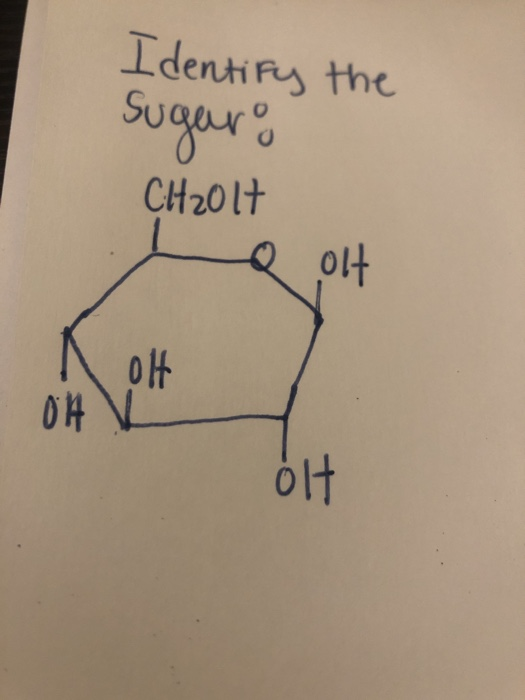 Identify the
Sugar:
CH2OH
O
OH
OH
OH
OH